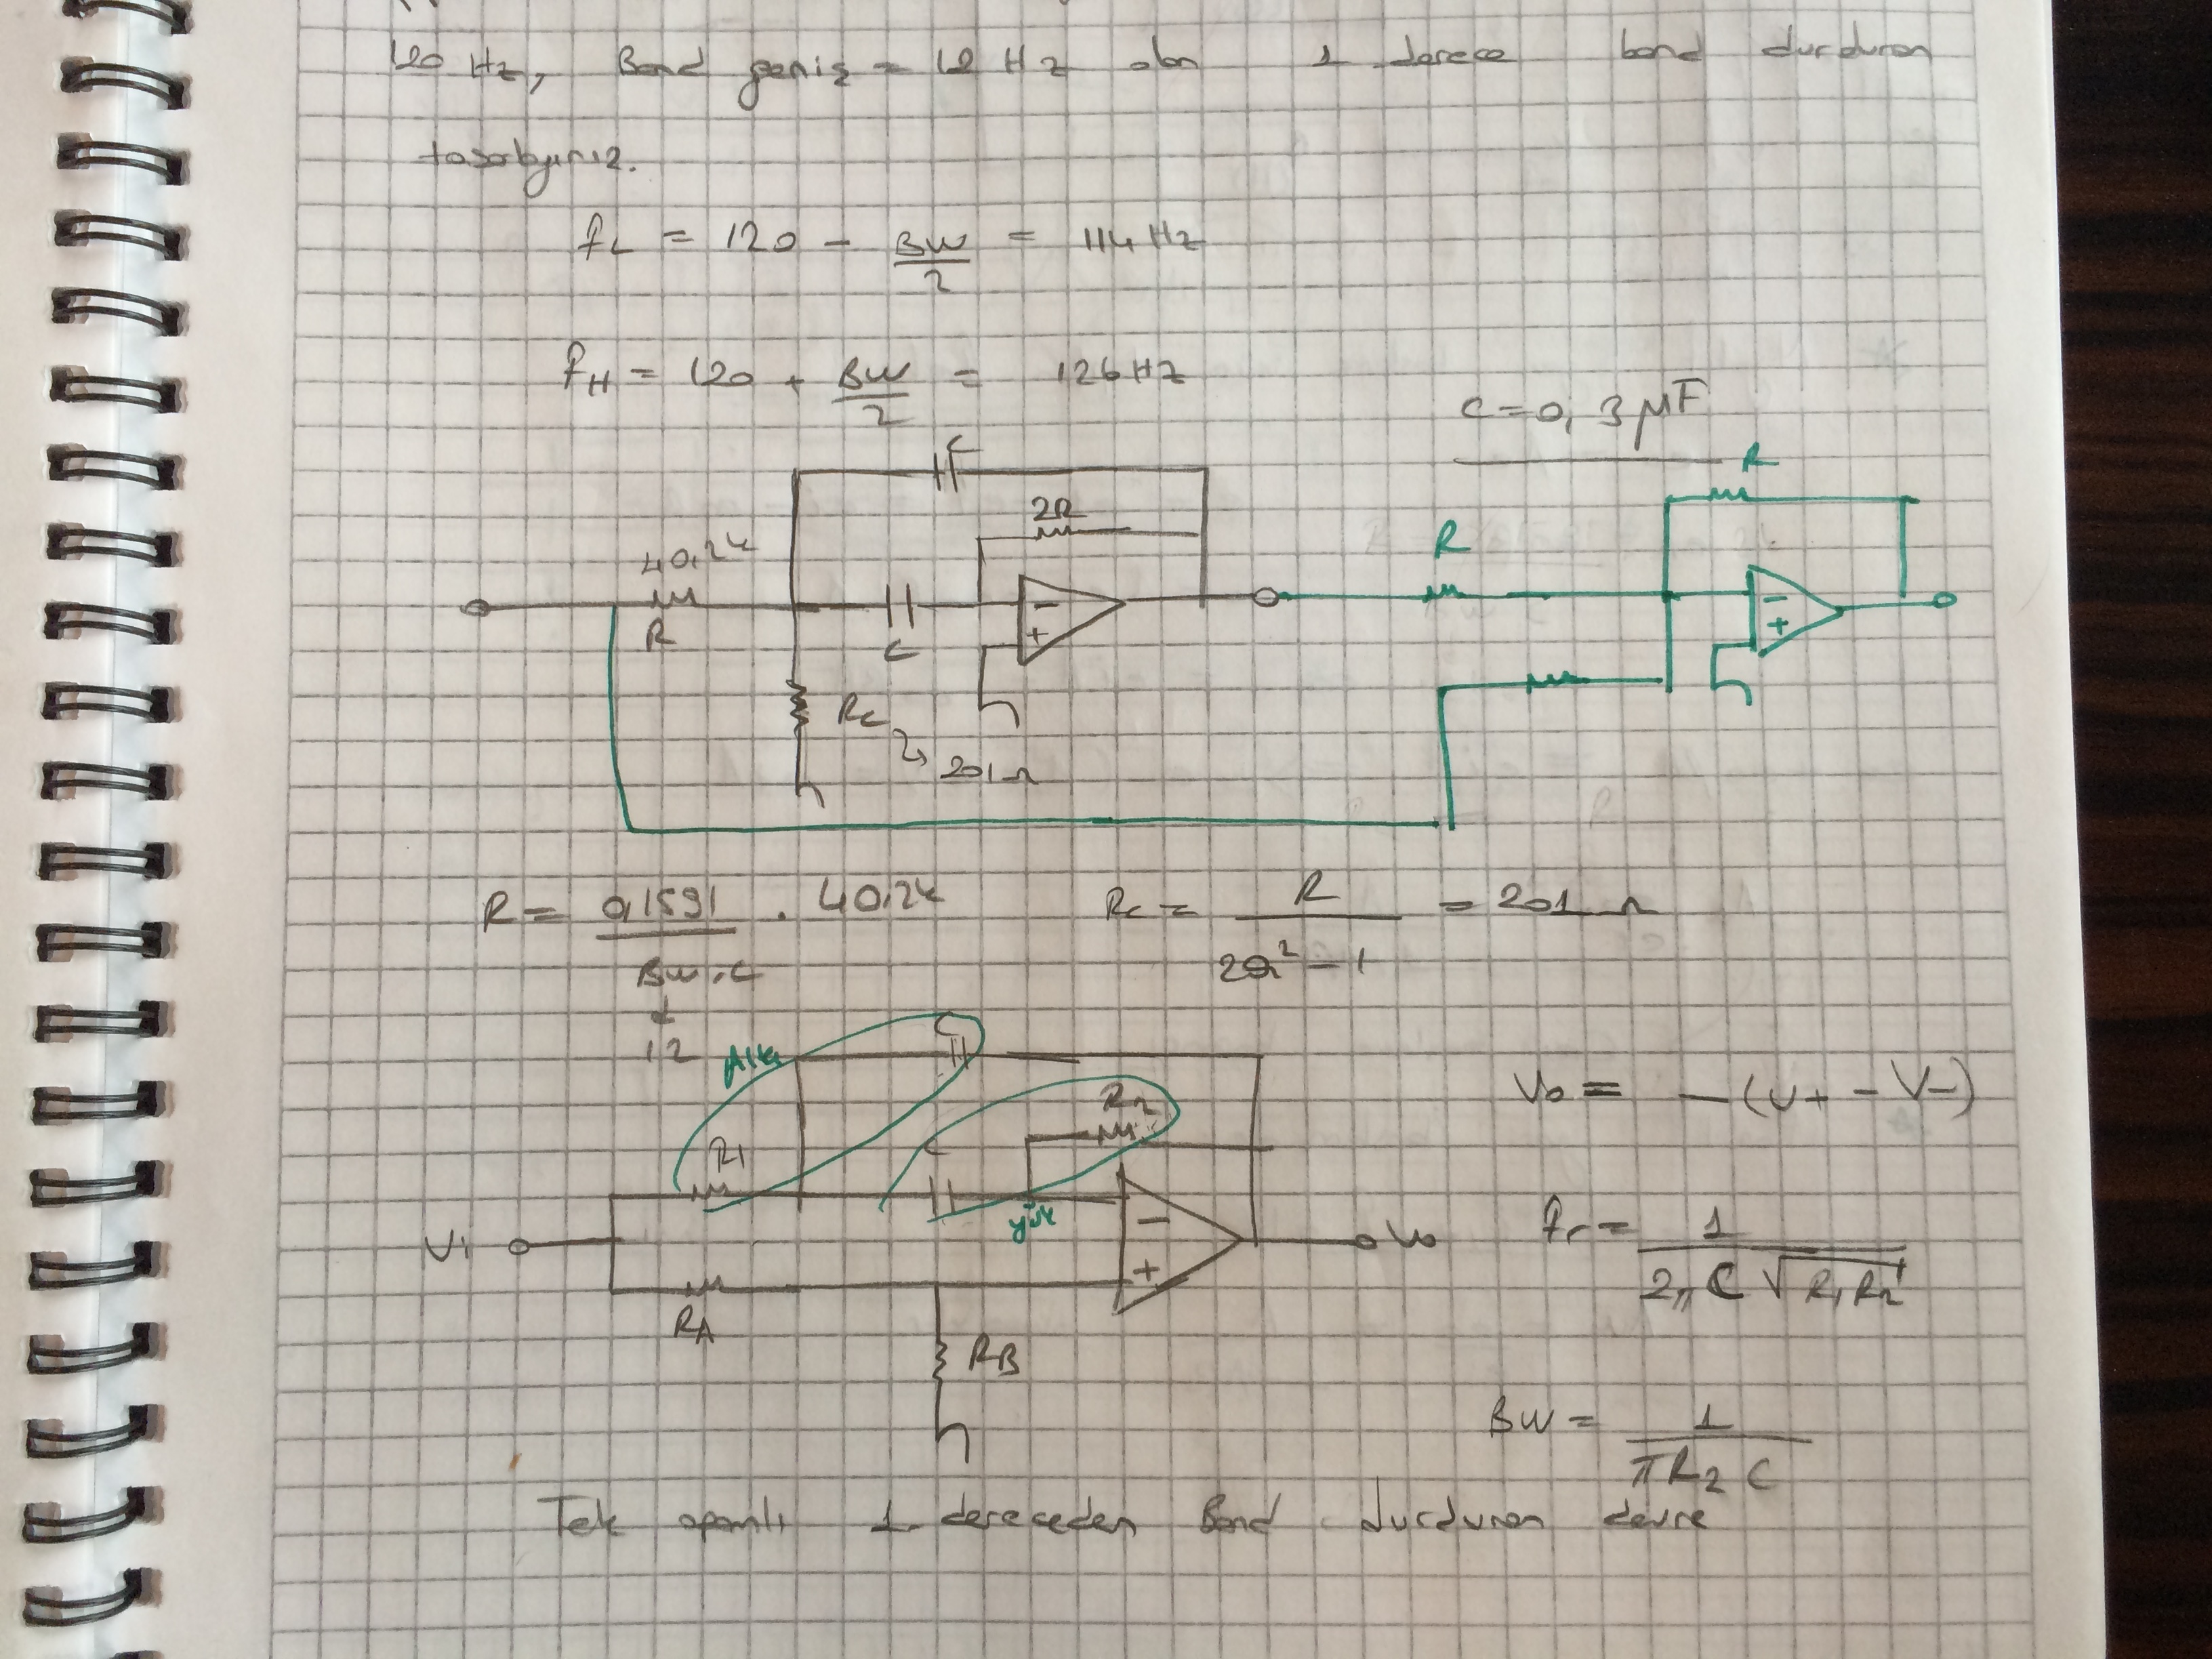 120 Hz, Band geniş = 12 Hz olan 1 derece band durduran
tasarlayınız.
fL = 120 - BW/2 = 114 Hz
fH = 120 + BW/2 = 126 Hz
C = 0,3 µF
C
2R
R
40,2k
R
R
C
- +
- +
Rc
201 Ω
R = 0,1591/BW.C . 40,2k
Rc = R/2Q² - 1 = 201 Ω
12
C
R2
C
R1
yük
Vi
- +
Vo
RA
RB
Vo = -(V+ - V-)
fr = 1/2π C √R1R2
BW = 1/πR2 C
Tek opamlı 1. dereceden Band durduran devre